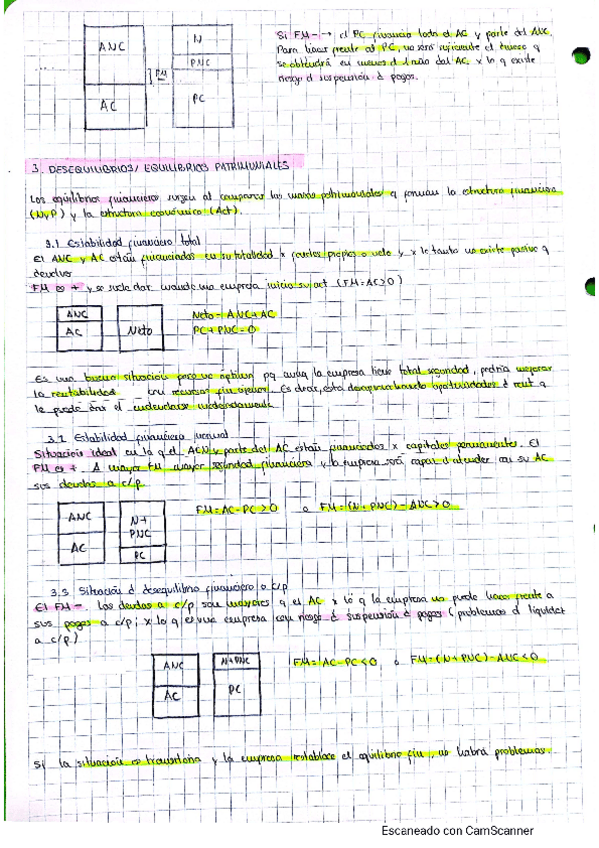 Si FM- → el PC financia todo el AC y parte del ANC.
Para hacer frente al PC, no será suficiente el dinero q
se obtendrá en menos d 1 año del AC x lo q existe
riesgo d suspensión d pagos.
ANC
AC
FM
N
PNC
PC
3. DESEQUILIBRIOS/ EQUILIBRIOS PATRIMONIALES
Los equilibrios financieros surgen al comparar las masas patrimoniales q forman la estructura financiera
(N y P) y la estructura económica (Act).
3.1 Estabilidad financiera total
El ANC y AC están financiados en su totalidad x fondos propios o neto y x lo tanto no existe pasivo q
devolver
FM es + y se suele dar cuando una empresa inicia su act (FM=AC>0)
ANC
AC
Neto
Neto = ANC+AC
PC+PNC=0
Es una buena situación pero no óptima pq aunq la empresa tiene total seguridad, podría mejorar
la rentabilidad con recursos fin ajenos. Es decir, está desaprovechando oportunidades d rent q
le puede dar el endeudarse moderadamente
3.2 Estabilidad financiera normal
Situación ideal en la q el ACN y parte del AC están financiados x capitales permanentes. El
FM es +. A mayor FM mayor seguridad financiera y la empresa será capaz d atender con su AC
sus deudas a c/p.
ANC
AC
N+
PNC
PC
FM=AC-PC>0 o FM=(N+PNC)-ANC>0
3.3 Situación d desequilibrio financiero a c/p
El FM-. Las deudas a c/p son mayores q el AC x lo q la empresa no puede hacer frente a
sus pagos a c/p; x lo q es una empresa con riesgo d suspensión d pagos (problemas d liquidez
a c/p)
ANC
AC
N+PNC
PC
FM=AC-PC<0 ó FM=(N+PNC)-ANC<0
Si la situación es transitoria y la empresa restablece el equilibrio fin, no habrá problemas.
Escaneado con CamScanner